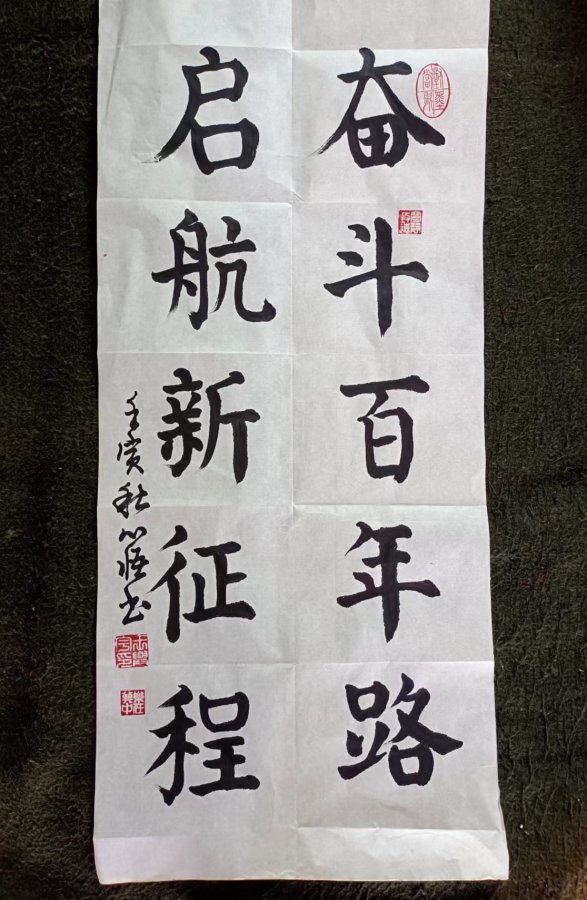 奋斗百年路
启航新征程
壬寅秋心恒书